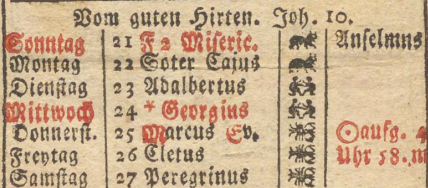 Vom guten Hirten. Joh. 10.
Sonntag 21 F 2 Miseric. Anselmus
Montag 22 Soter Cajus
Dienstag 23 Adalbertus
Mittwoch 24 * Georgius
Donnerst. 25 Marcus Ev. ☉aufg. 4
Freytag 26 Cletus Uhr 58. m
Samstag 27 Peregrinus